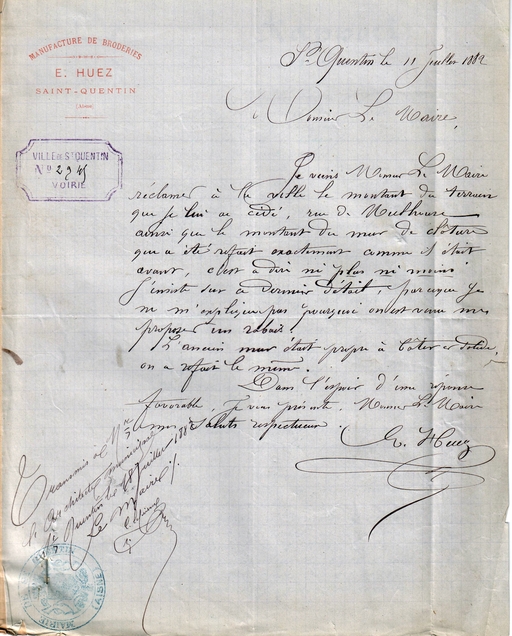 MANUFACTURE DE BRODERIES
E. HUEZ
SAINT-QUENTIN
(Aisne)
St Quentin le 11 Juillet 1882
Monsieur Le Maire,
VILLE DE ST QUENTIN
No
VOIRIE
Je viens Monsieur Le Maire
réclamer à la ville le montant du terrain
que je lui ai cédé, rue de Mulhouse
ainsi que le montant du mur de clôture
qui a été refait exactement comme il était
avant, c'est à dire ni plus ni moins
J'insiste sur ce dernier détail, parceque je
ne m'explique pas pourquoi on est venu me
proposer un rabais
L'ancien mur était propre à bâtir et solide,
on a refait le même.
Dans l'espoir d'une réponse
favorable, je vous présente, Monsieur Le Maire
mes saluts respectueux.
E. Huez
Transmis à Mr
l'Architecte municipal
St Quentin le 18 Juillet 1882
Le Maire
MAIRIE
AISNE